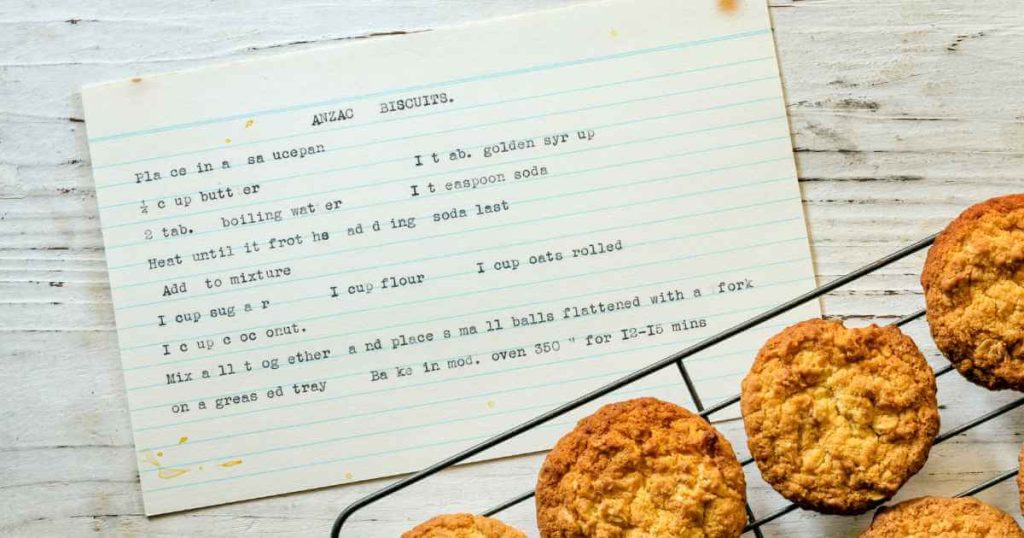 ANZAC BISCUITS.
Pla ce in a sa ucepan
½ c up butt er I t ab. golden syr up
2 tab. boiling wat er I t easpoon soda
Heat until it frot hs ad d ing soda last
Add to mixture
I cup sug a r I cup flour I cup oats rolled
I c up c oc onut.
Mix a ll t og ether a nd place s ma ll balls flattened with a fork
on a greas ed tray Ba ke in mod. oven 350 " for I2-I5 mins